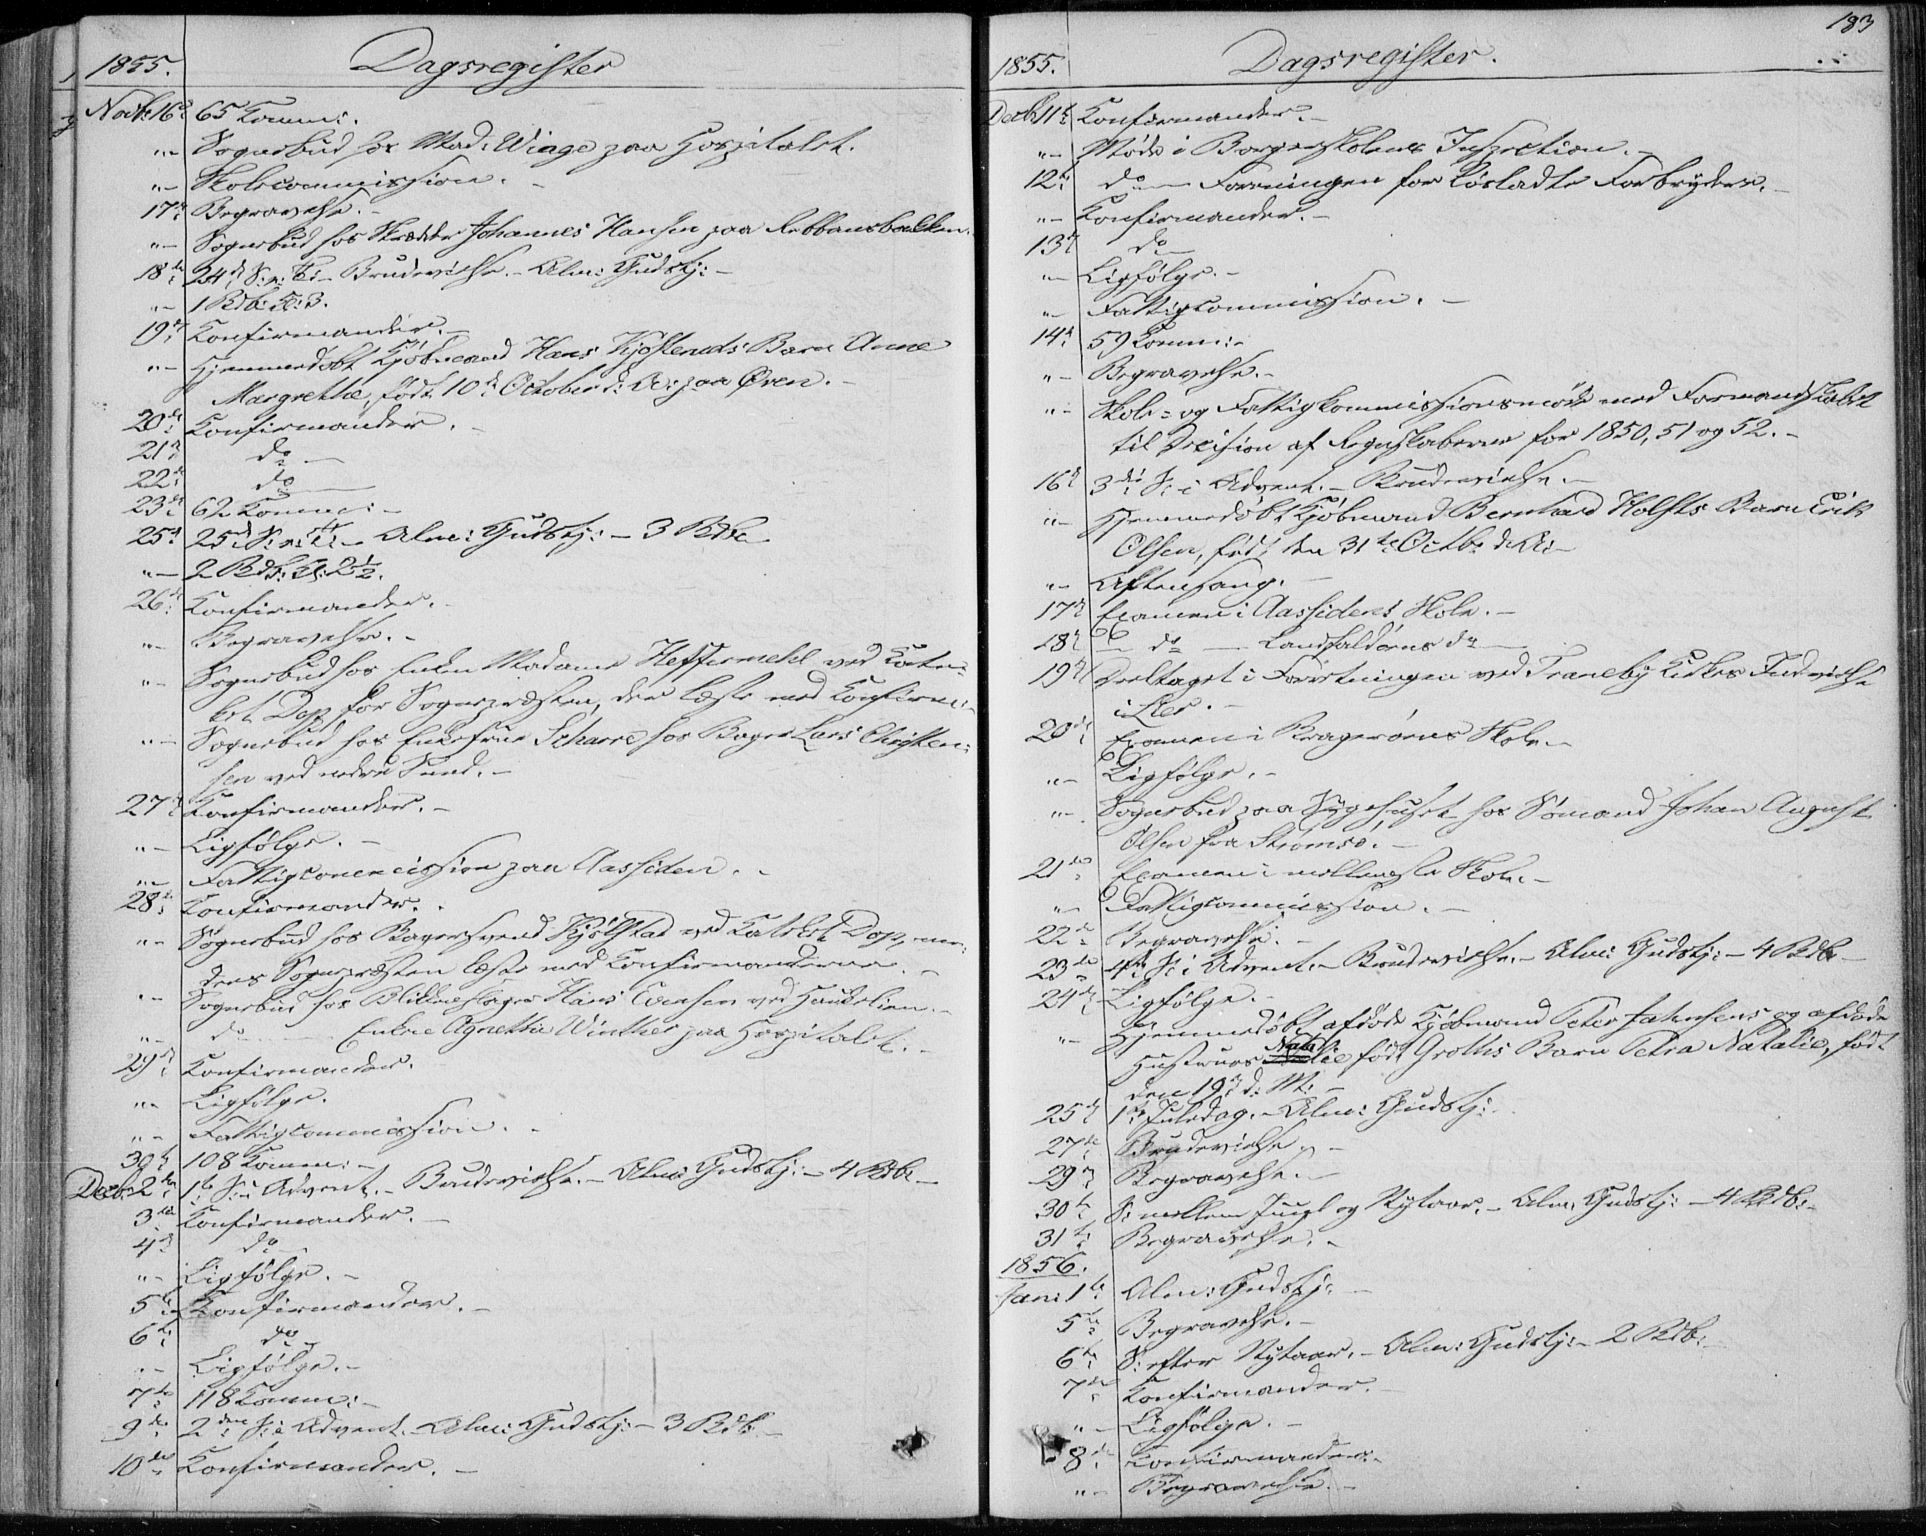 1855. Dagsregister
Novb: 16de 65 Komm:
"– Sognebud hos Mad: Winge paa Hospitalet.
"– Skolecommission. –
17de Begravelse. –
"– Sognebud hos Skrædder Johannes Hansen paa
18de 24de S: e: Tr: – Brudevielse. – Alm: Gudstj: –
"– 1 Bdb: Kl: 3.
19de Konfirmander. –
"– Hjemmedøbt Kjøbmand Hans Kjøsteruds Barn Anne
Margrethe, født 10de October d: A: paa Øren. –
20de Konfirmander. –
21de do –
22de do
23de 62 Komm: –
25de 25de S: e: Tr: – Alm: Gudstj: – 3 Bdb.
"– 2 Bdb: Kl: 2½.
26de Konfirmander. –
"– Begravelse. –
"– Sognebud hos Enken Madame Heffermehl ved Kate-
ket Dop for Sognepræsten, der læste med Konfirm:
"– Sognebud hos Enkefrue Scharre hos Bager Lars Christen-
sen ved nedre Sund. –
27de Konfirmander. –
"– Ligfølge. –
"– Fattigcommission paa Aassiden. –
28de Konfirmander. –
"– Sognebud hos Bagersvend Kjølstad ved Kateket Dop, me-
dens Sognepræsten læste med Konfirmanderne. –
"– Sognebud hos Blikkenslager Hans Evensen ved
"– do Enken Agnethe Winther paa Hospitalet. –
29de Konfirmander.
"– Ligfølge.
"– Fattigcommission. –
30te 108 Komm: –
Decb: 2den 1ste S: i Advent. – Brudevielse. – Alm: Gudstj: – 4 Bdb. –
3die Konfirmander. –
4de do
"– Ligfølge. –
5te Konfirmander. –
6te do
"– Ligfølge. –
7de 118 Komm: –
9de 2den S: i Advent. Alm: Gudstj: – 3 Bdb. –
10de Konfirmander. –
183
1855. Dagsregister.
Decb: 11te Konfirmander. –
"– Møde i Borgerskolens Inspection. –
12te do – Foreningen for løsladte Forbrydere. –
"– Konfirmander. –
13de do –
"– Ligfølge. –
"– Fattigcommission. –
14de 59 Komm: –
"– Begravelse. –
"– Skole- og Fattigkommissionsmøde med Formandskabet
til Decision af Regnskaberne for 1850, 51 og 52. –
16de 3die S: i Advent. – Brudevielse. –
"– Hjemmedøbt Kjøbmand Bernhard Holfts Barn Erik
Olsen, født den 31te Octb: d: A: –
"– Aftensang. –
17de Examen i Aassidens Skole. –
18de do – Landfaldøens do
19de Deeltaget i Forretningen ved Tranebye Kirkes Indvielse
i Lier. –
20de Examen i Bragerøens Skole. –
"– Ligfølge. –
"– Sognebud paa Sygehuset hos Sømand Johan August
Olsen fra Strømsø. –
21de Examen i mellemste Skole. –
"– Fattigcommission. –
22de Begravelse. –
23de 4de S: i Advent. – Brudevielse. – Alm: Gudstj: – 4 Bdb. –
24de Ligfølge. –
"– Hjemmedøbt afdøde Kjøbmand Peter Jahnsens og afdøde
Hustrues Natalie født Groths Barn Petra Natalie, født
den 19de d: M: –
25de 1ste Juledag. – Alm: Gudstj: –
27de Brudevielse. –
29de Begravelse. –
30te S: mellem Juul og Nytaar. – Alm: Gudstj: – 4 Bdb: –
31te Begravelse. –
1856.
Jan: 1ste Alm: Gudstj: –
5te Begravelse. –
6te S: efter Nytaar. – Alm: Gudstj: – 2 Bdb:
7de Konfirmander. –
"– Ligfølge. –
8de Konfirmander. –
"– Begravelse. –